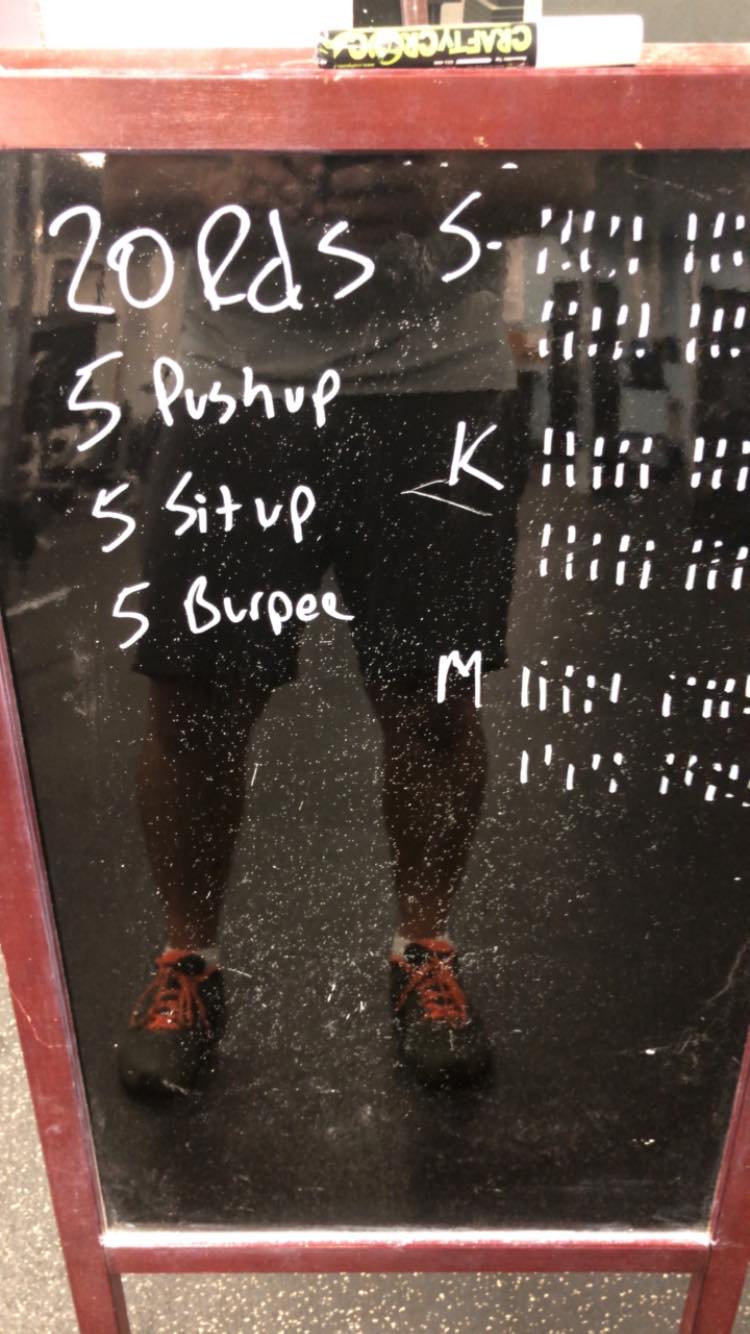 CRAFTYCROC
20 Rds
5 Pushup
5 Situp
5 Burpee
S-
K
M